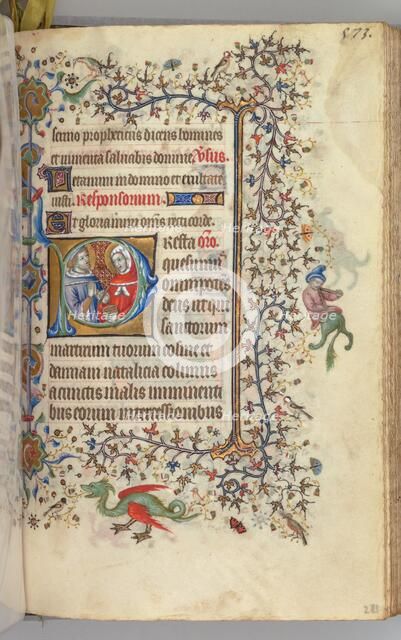 573.
sermo propheticus dicens homines
et iumenta saluabis domine. Vsus.
Letamini in domino et exultate
iusti. Responsorium.
Et gloriamini omnes recti corde.
Presta Oro.
quesumus
omnipotens
deus ut qui
sanctorum
martirum tuorum cosme et
damiani natalicia colimus
a cunctis malis imminenti
bus eorum intercessionibus
281
Heritage
Heritage
Heritage
Heritage
Heritage